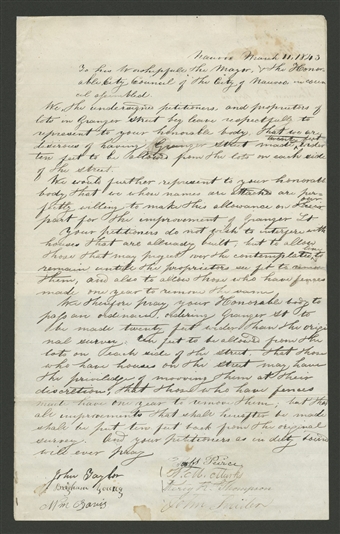 Nauvoo March 11. 1843
To his Worshipfull the Mayor, & the Honor-
able City Council of the City of Nauvoo in coun-
cil assembled.
We the undersigned petitioners and proprietors of
lots in Granger Street by leave respectfully to
represent to your honorable body, that we are
desirous of having Granger Street made twenty feet wider
ten feet to be allowed from the lots on each side
of the street.
We would further represent to your honorable
body that we whose names are attached are per-
fectly willing to make this allowance on our
part for the improvement of Granger St
Your petitioners do not wish to interfere with
houses that are already built, but to allow
those that may project over the contemplated to
remain until the proprietors see fit to remove
them, and also to allow those who have fences
made one year to remove the same.
We therefore pray, your Honorable body to
pass an ordinance, ordering Granger St to
be made twenty feet wider than the origi-
nal survey. Ten feet to be allowed from the
lots on each side of the street, that those
who have houses on the street may have
the priviledge of moving them at their
discretion, that those who have fences
made have one year to remove them, but that
all improvements that shall hereafter be made
shall be put ten feet back from the original
survey. And your petitioners as in duty bound
will ever pray
John Taylor
Brigham Young
Wm Davis
Pierce
Thompson